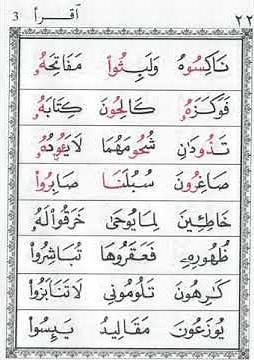 ٢٢ اقرأ 3
نَاكِسُوهُ وَلَبِثُوا مَفَاتِحَهُ
فَوَكَزَهُ كَالِحُونَ كِتَابَهُ
تَذُودَانِ شُحُومَهُمَا لَايَئُودُهُ
صَاغِرُونَ سُبُلَنَا صَابِرُوا
خَاطِئِينَ لِمَا يُوحَى خَرَقُوا لَهُ
ظُهُورِهِ فَعَقَرُوهَا تُبَاشِرُوا
كَٰرِهُونَ تَلُومُونِي لَا تَنَابَزُوا
يُوزَعُونَ مَقَالِيدُ يَيِسُوا